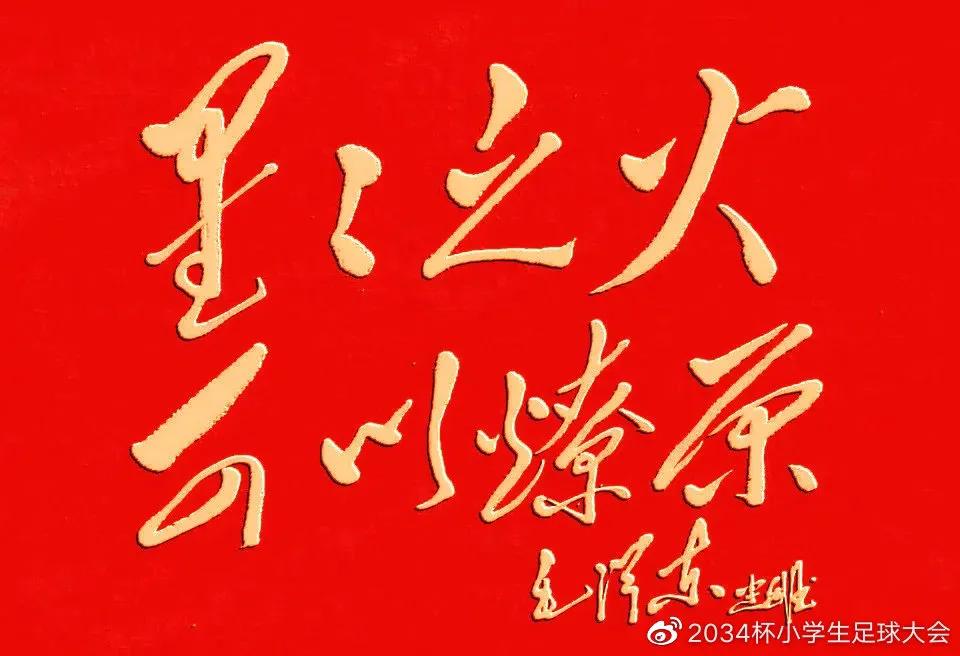 星〻之火
可以燎原
毛泽东
2034杯小学生足球大会